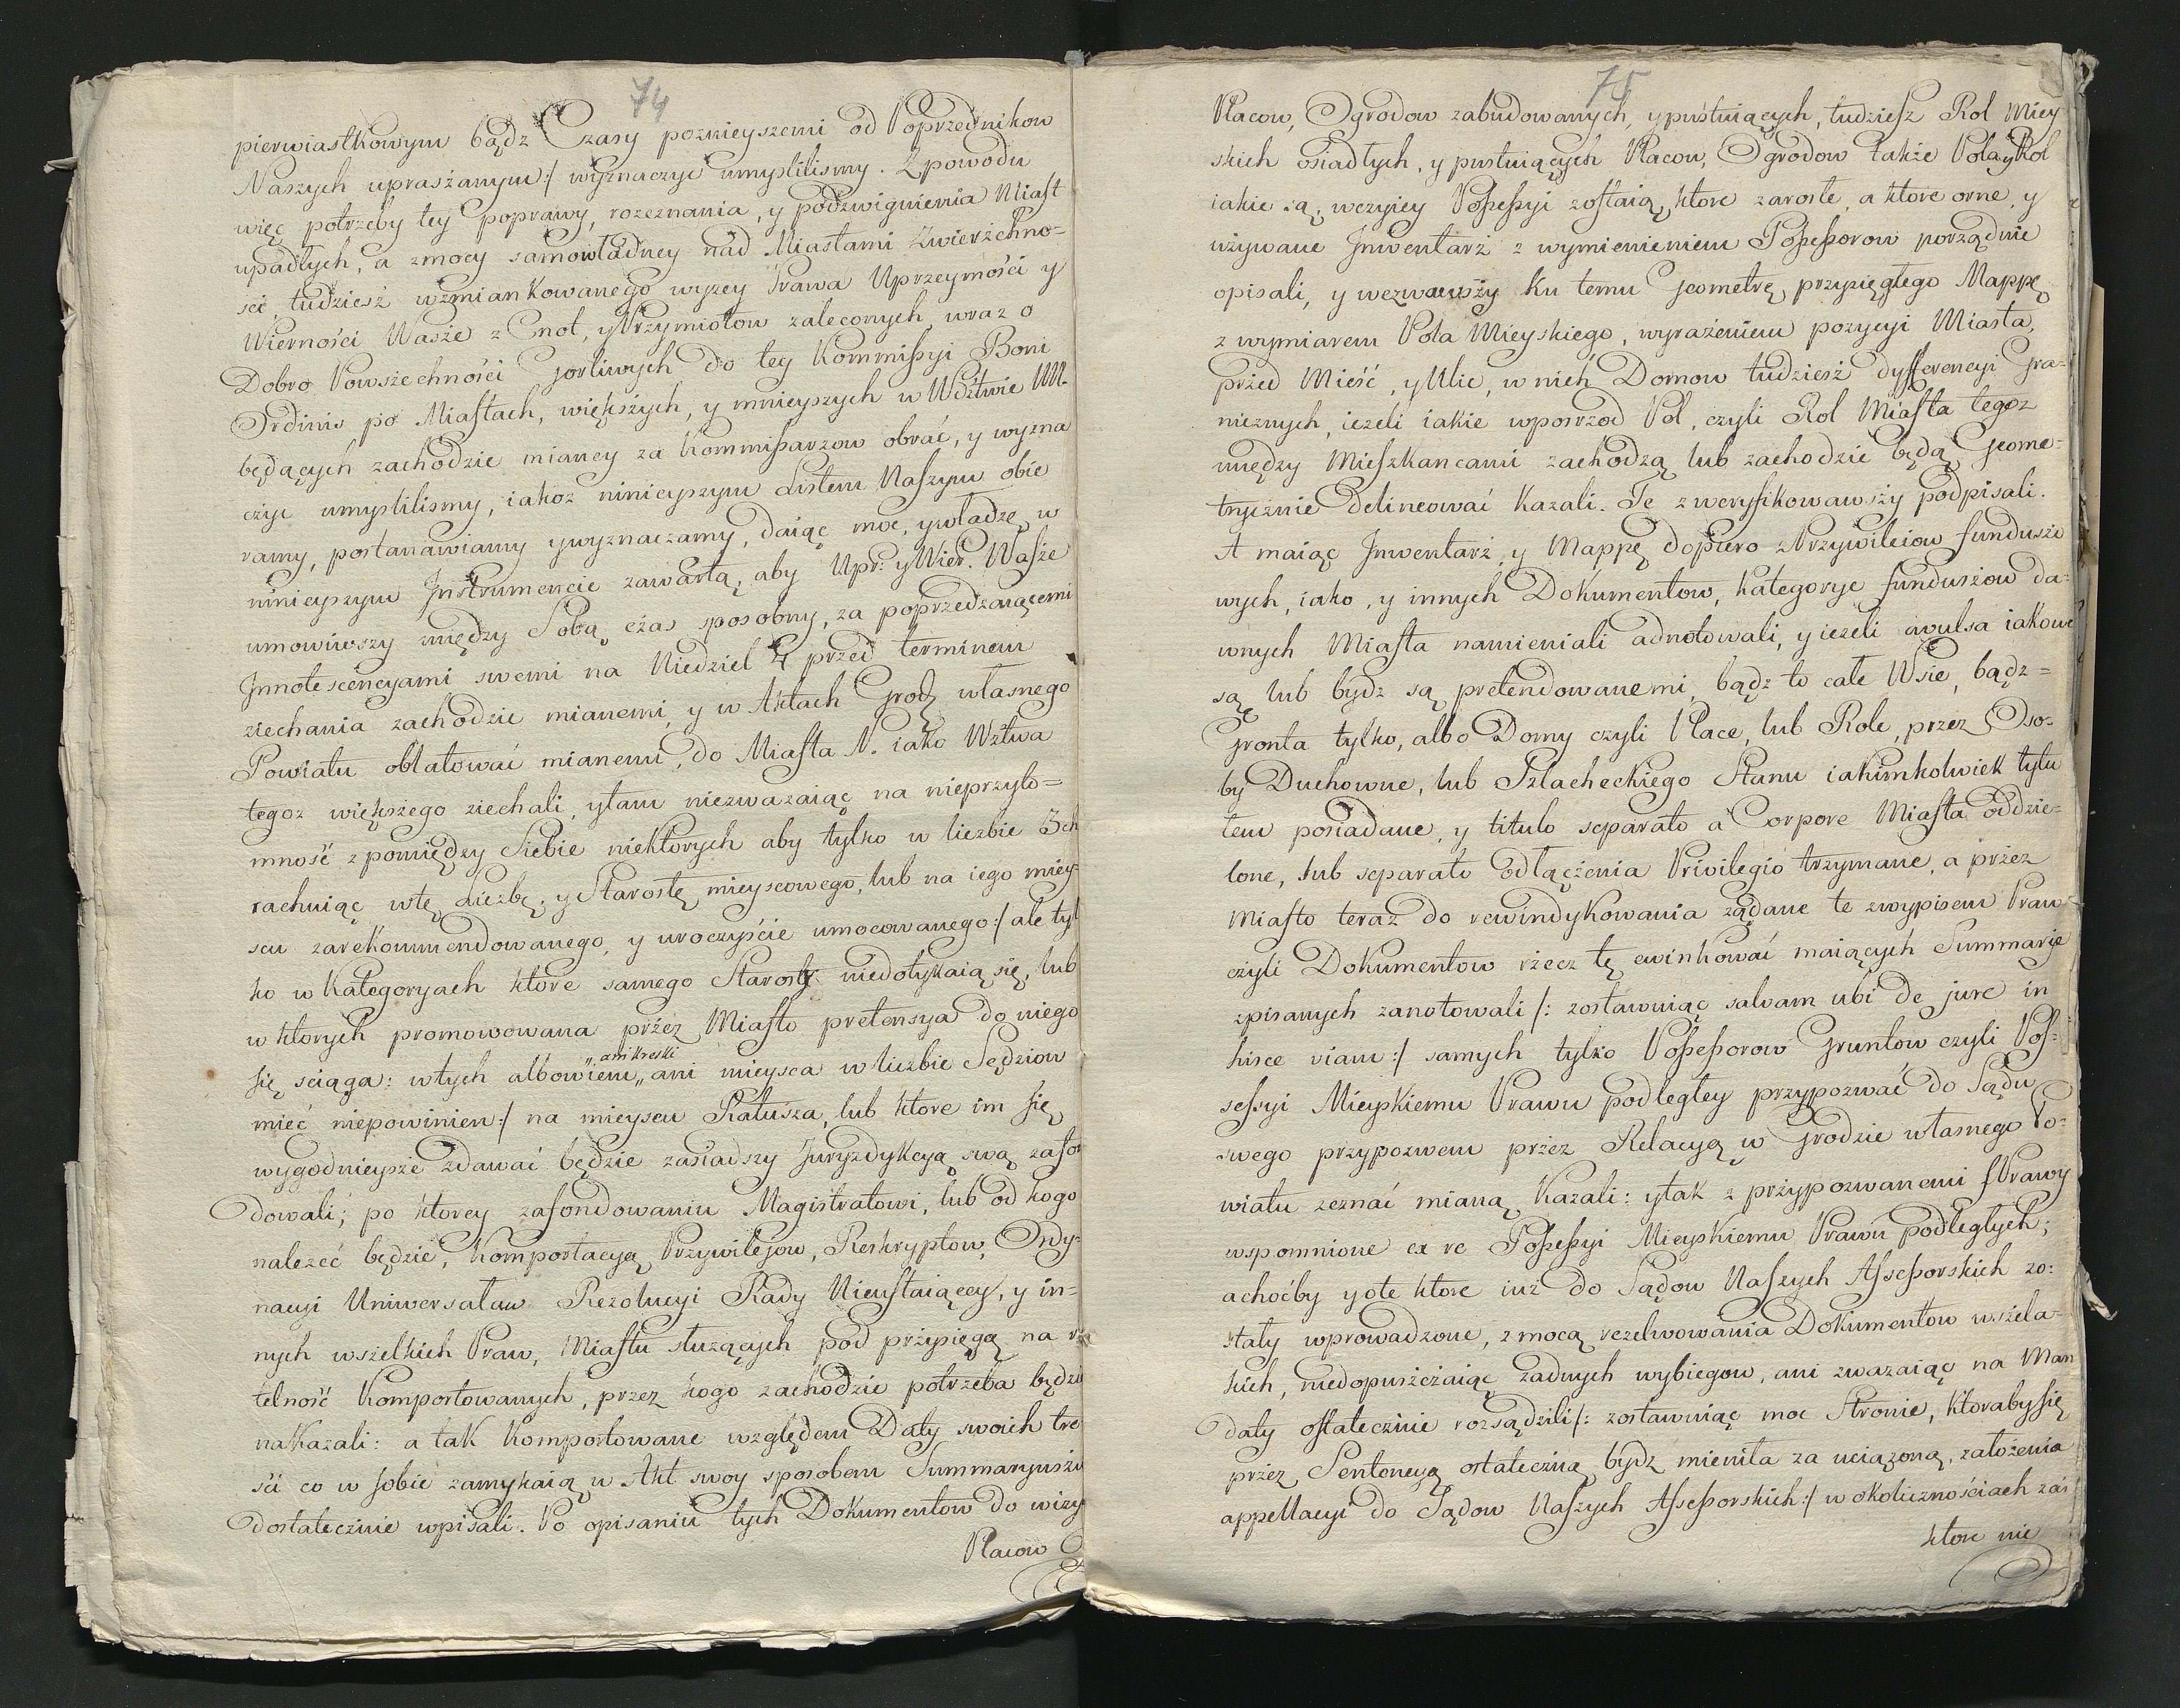 74
pierwiastkowym bądz Czasy poznieyszemi od Poprzednikow
Naszych upraszanym:/ wyznaczyc umyslilismy. Z powodu
więc potrzeby tey poprawy, rozeznania, y podzwignienia Miast
upadłych, a z mocy samowładney nad Miastami Zwierzchno=
sci, tudziesz wzmiankowanego wyzey Prawa Uprzeymości y
Wierności Wasze z Cnot, y Przymiotow zaleconych wraz o
Dobro Powszechności Gorliwych do tey Kommissyi Boni
Ordinis po Miastach, większych, y mnieyszych w Wdztwie NN.
będących zachodzic mianey za Kommissarzow obrać, y wyzna
czyc umyslilismy, iakoz ninieyszym Listem Naszym obie
ramy, postanawiamy y wyznaczamy, daiąc moc, y władzę w
ninieyszym Instrumencie zawartą, aby Upr: y Wier. Wasze
umowiwszy między Sobą czas sposobny, za poprzedzaiącemi
Innotescencyami swemi na Niedziel 4 przed terminem
ziechania zachodzic mianemi, y w Aktach Grodz własnego
Powiatu oblatować mianemi, do Miasta N. iako Wztwa
tegoz większego ziechali, y tam niezwazaiąc na nieprzyto=
mność z pomiędzy Siebie niektorych aby tylko w liczbie 3ch
rachuiąc w tę Liczbę, y Starostę mieyscowego, lub na iego miey=
scu zarekommendowanego, y uroczyście umocowanego:/ ale tyl
ko w Kategoryach ktore samego Starosty niedotykaią się, lub
w ktorych promowowana przez Miasto pretensya do niego
się sciąga: w tych albowiem „ani kreski„ ani mieysca w liczbie Sędziow
mieć niepowinien:/ na mieyscu Ratusza, lub ktore im się
wygodnieysze zdawać będzie zasiadszy Juryzdykcyą swą zafon
dowali; po ktorey zafondowaniu Magistratowi, lub od kogo
nalezeć będzie, Komportacyą Przywilejow, Reskryptow, Ordy=
nacyi Uniwersaław Rezolucyi Rady Nieustaiącey, y in=
nych wszelkich Praw, Miastu służących pod przysięgą na rze
telność Komportowanych, przez kogo zachodzic potrzeba będzie
nakazali: a tak Komportowane względem Daty swoich tre
sci co w sobie zamykaią w Akt swoy sposobem Summaryuszu
dostatecznie wpisali. Po opisaniu tych Dokumentow do wizyi
Placow
75
Placow, Ogrodow zabudowanych, y pustuiących, tudziesz Rol Miey
skich osiadłych, y pustuiących Placow, Ogrodow także Pola y Rol
iakie są, w czyiey Possessyi zostaią, ktore zarosłe, a ktore orne, y
używane Inwentarz z wymienieniem Possessorow porządnie
opisali, y wezwawszy ku temu Geometrę przysięgłego Mappę
z wymiarem Pola Mieyskiego, wyrażeniem pozycyi Miasta,
przed Mieść, y Ulic, w nich Domow tudziesz dyfferencyi Gra=
nicznych, iezeli iakie wposrzod Pol, czyli Rol Miasta tegoz
między Mieszkancami zachodzą lub zachodzić będą Geome=
trycznie Delineować kazali. Te zweryfikowawszy podpisali.
A maiąc Inwentarz, y Mappę dopiero z Przywileiow funduszo
wych, iako, y innych Dokumentow, kategorye funduszow da=
wnych Miasta namieniali adnotowali, y iezeli avulsa iakowe
są lub bydz są pretendowanemi, bądz to całe Wsie, bądz=
Gronta tylko, albo Domy czyli Place, lub Role, przez Oso=
by Duchowne, lub Szlacheckiego Stanu iakimkolwiek tytu
łem posiadane, y titulo separato a Corpore Miasta oddzie=
lone, sub separato odłączenia Privilegio trzymane, a przez
Miasto teraz do rewindykowania ządane te z wypisem Praw
czyli Dokumentow rzecz tę ewinkować maiących Summarje
zpisanych zanotowali /: zostawuiąc salvam ubi de jure in
hisce viam:/ samych tylko Possessorow Gruntow czyli Pos=
sessyi Mieyskiemu Prawu podległey przypozwać do Sądu
swego przypozwem przez Relacyą w Grodzie własnego Po=
wiatu zeznać mianą, kazali: y tak z przypozwanemi Sprawy
wspomnione ex re Possessyi Mieyskiemu Prawu podległych;
a choćby y o te ktore iuż do Sądow Naszych Assessorskich zo=
stały wprowadzone, z mocą rezolwowania Dokumentow wszela=
kich, niedopuszczaiąc zadnych wybiegow, ani zwazaiąc na Man
daty ostatecznie rozsądzili /: zostawuiąc moc Stronie, ktoraby się
przez Sentencyą ostateczną bydz mieniła za uciązoną, założenia
appellacyi do Sądow Naszych Assessorskich:/ w okolicznościach zaś
ktore nie